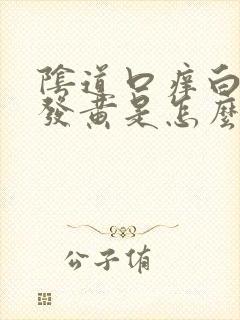 陰道口痒白
發黃是怎麼
公子侑